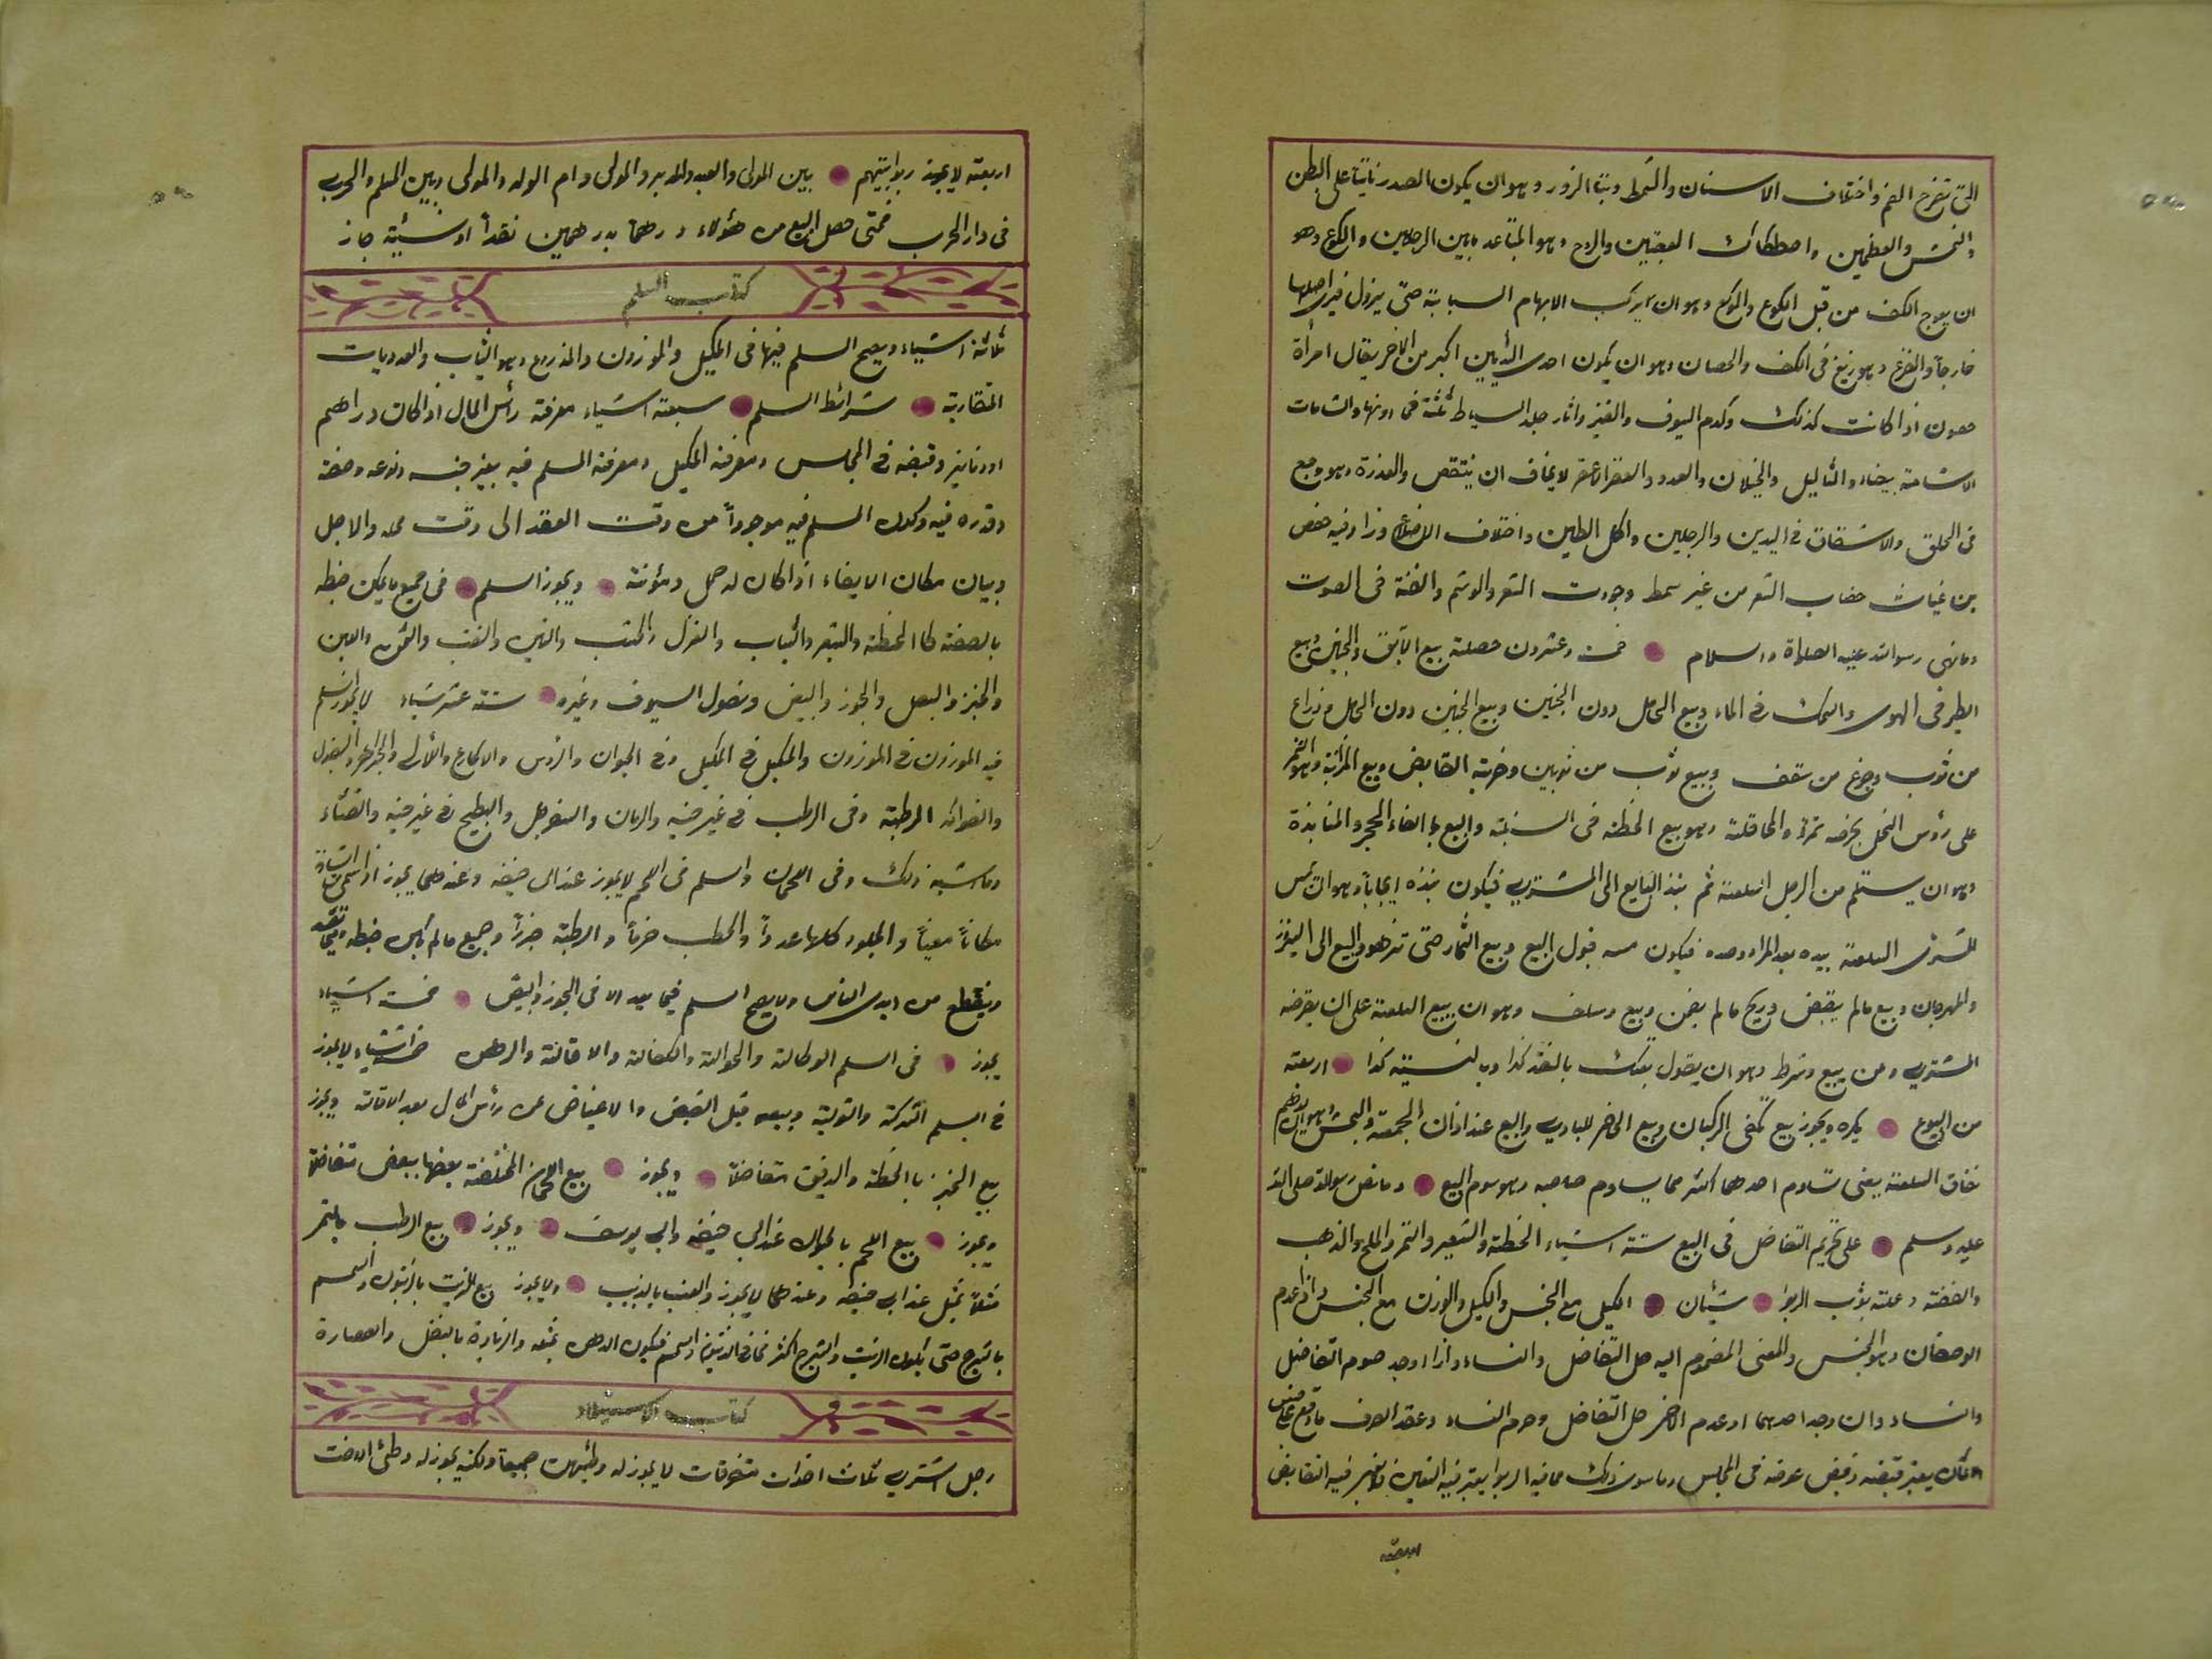 التى تخرج الفم واختلاف الاسنان والشمط ونتأ الزور وهو ان يكون الصدر ناتيا على البطن
والنمش والعظمين واصطكاك العقبين والروح وهو المتباعد ما بين الرجلين والكوع وهو
ان يعوج الكف من قبل الكوع والوكع وهو ان يركب الابهام السبابة حتى يزول فيرى اصلها
خارجا والفزع وهو زيغ فى الكف والحصان وهو ان يكون احدى الثديين اكبر من الاخر يقال امرأة
حصون اذا كانت كذلك وكدم السيوف والقيز واثار جلد السياط ثلثة فى لونها والشامات
الا شامة بيضاء والثاليل والخيلان والغدد والعقر لا يخاف ان ينتقص والعذرة وهو وجع
فى الحلق والانشقاق فى اليدين والرجلين واكل الطين واختلاف الاضلاع وزاد فيه حفص
بن غياث خضاب الشعر من غير شمط وجودت الشعر والوشم والغنة فى الصوت
وما نهى رسول الله عليه الصلوة والسلام خمسة وعشرون خصلة بيع الآبق والجنين وبيع
الطير فى الهوى والسمك فى الماء وبيع الحامل دون الجنين وبيع الجنين دون الحامل وذراع
من ثوب وجذع من سقف وبيع ثوب من ثوبين وضربة القانص وبيع المزابنة وهو الثمر
على رؤس النخل بخرصه تمرا والمحاقلة وهو بيع الحنطة فى السنبلة والبيع بالقاء الحجر والمنابذة
وهو ان يستلم من الرجل السلعة ثم ينبذ البايع الى المشترى فيكون نبذه ايجابا وهو ان تمس
المشترى السلعة بيده بعد المراوضة فيكون مسه قبول البيع وبيع الثمار حتى تزهو والبيع الى النيروز
والمهرجان وبيع مالم يقبض وربح مالم يضمن وبيع وسلف وهو ان يبيع السلعة على ان يقرضه
المشترى ومن بيع وشرط وهو ان يقول بعتك بالنقد كذا وبالنسيئة كذا اربعة
من البيوع يكره ويجوز بيع تلقى الركبان وبيع الحاضر للبادى والبيع عند اذان الجمعة والنجش
نفاق السلعة يعنى تساوم احدهما اكثر مما يساوم صاحبه وهو سوم البيع وما نص رسول الله صلى الله
عليه وسلم على تحريم التفاضل فى البيع ستة اشياء الحنطة والشعير والتمر والملح والذهب
والفضة وعلته ثبوت الربوا شيئان الكيل مع الجنس والكيل والوزن مع الجنس واذا عدم
الوصفان وهو الجنس والمعنى المضموم اليه حل التفاضل والنساء واذا وجد حرم التفاضل
والنساء وان وجد احدهما وعدم الاخر حل التفاضل وحرم النساء وعقد الصرف ما وقع على جنس
الاثمان يعتبر قبضه وقبض عوضه فى المجلس وما سوى ذلك مما فيه الربوا يعتبر فيه التعيين ولا يعتبر فيه التقابض
اربعة
اربعة لا يجوز ربوا بينهم بين المولى والعبد والمدبر والمولى وام الولد والمولى وبين المسلم والحربى
فى دار الحرب فمتى حصل البيع من هؤلاء درهما بدرهمين نقدا او نسيئة جاز
كتاب السلم
ثلاثة اشياء ويصح السلم فيها فى المكيل والموزون والمذروع وهو الثياب والعدديات
المتقاربة شرائط السلم سبعة اشياء معرفة رأس المال اذا كان دراهم
او دنانير وقبضه فى المجلس ومعرفة المكيل ومعرفة المسلم فيه يعنى جنسه ونوعه وصفته
وقدره فيه وكون المسلم فيه موجودا من وقت العقد الى وقت محله والاجل
وبيان مكان الايفاء اذا كان له حمل ومؤنة ويجوز السلم فى جميع ما يمكن ضبطه
بالصفة كالحنطة والشعر والثياب والغزل والخشب والتين والقنب واللبن
والخبز والبصل والجوز والبيض ونصول السيوف وغيره ستة عشر شياء لا يجوز السلم
فيه الموزون فى الموزون والمكيل فى المكيل وفى الحيوان والرؤس والاكارع واللآلى والجواهر والبقول
والفواكه الرطبة وفى الرطب فى غير حينه والرمان والسفرجل والبطيخ فى غير حينه والقثاء
وما اشبه ذلك وفى اللحمان والسلم فى اللحم لا يجوز عند ابى حنيفة وعندهما يجوز اذا سمى من الشاة
مكانا معينا والجلود كلها عددا والحطب حزما والرطبة جرزا وجميع مالم يمكن ضبطه
وينقطع من ايدى الناس ولا يصح السلم فيما يعد الا فى الجوز والبيض خمسة اشياء
يجوز فى السلم الوكالة والحوالة والكفالة والاقالة والرهن خمسة اشياء لا يجوز
فى السلم الشركة والتولية وبيعه قبل القبض والاعتياض عن رأس المال بعد الاقالة ويجوز
بيع الخبز بالحنطة والدقيق متفاضلا ويجوز بيع اللحمان المختلفة بعضها ببعض متفاضلا
ويجوز بيع اللحم بالحيوان عند ابى حنيفة وابى يوسف ويجوز بيع الرطب بالتمر
مثلا بمثل عند ابى حنيفة وعندهما لا يجوز والعنب بالزبيب ولا يجوز بيع الزيت بالزيتون والسمسم
بالشيرج حتى يكون الزيت والشيرج اكثر مما فى الزيتون والسمسم فيكون الدهن بمثله والزيادة بالثفل والعصارة
كتاب الاستيلاد
رجل اشترى ثلاث اخوات متفرقات لا يجوز له وطيهن جميعا ولكنه يجوز له وطئ الاخت